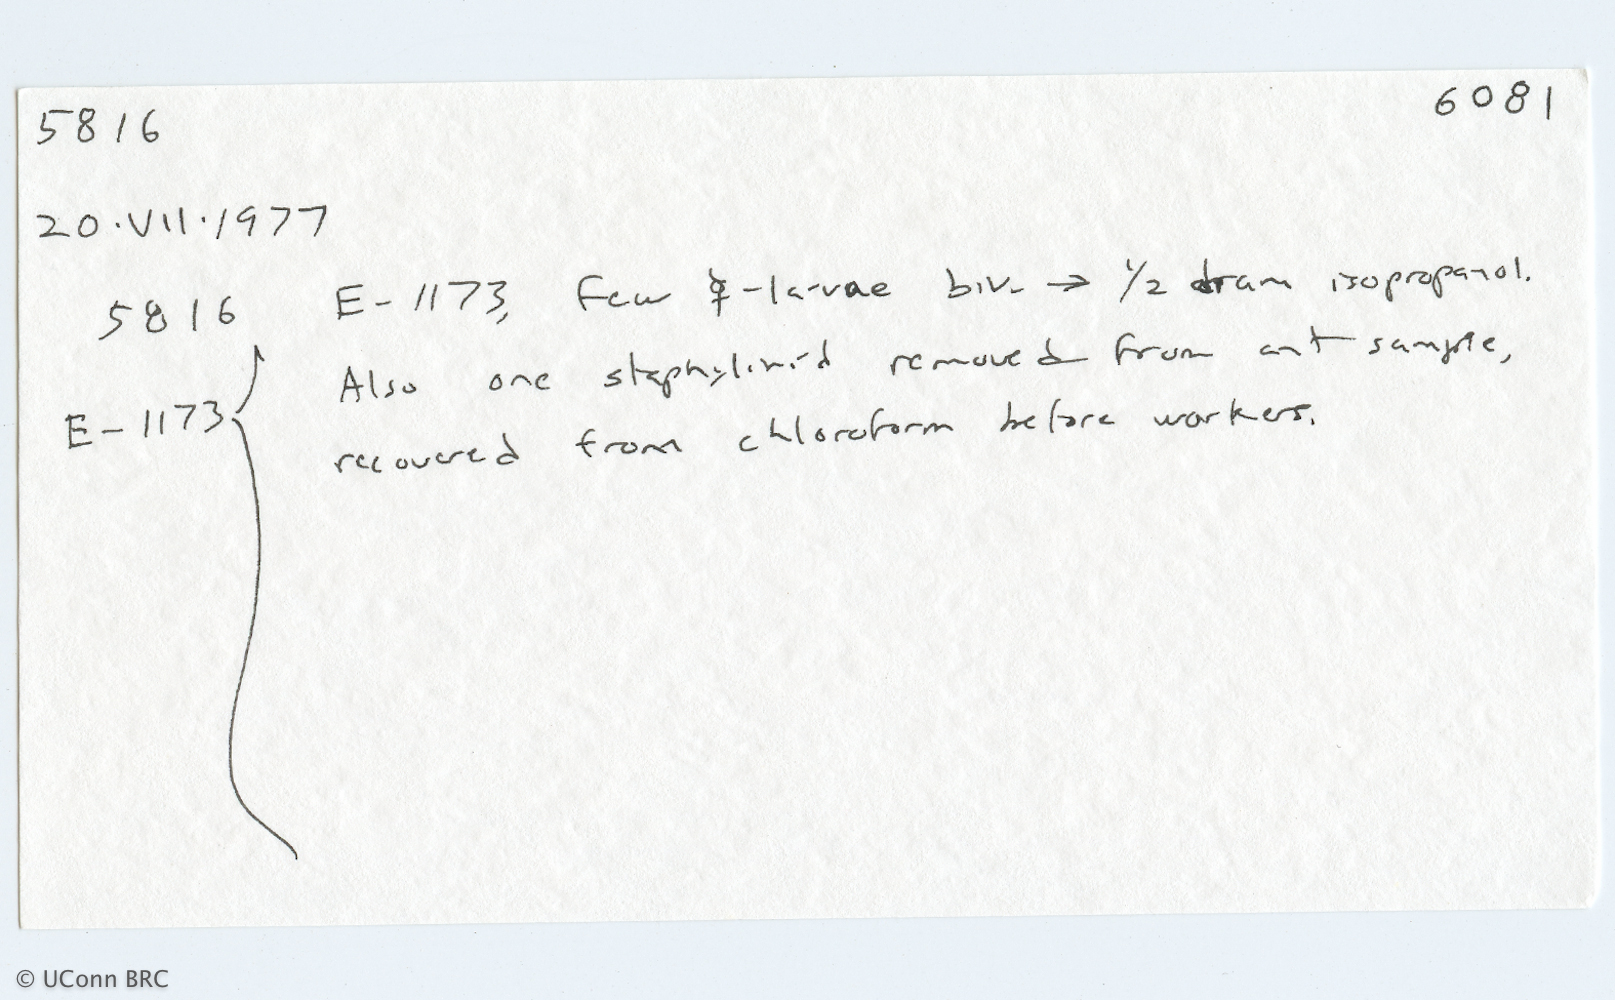 5816
6081
20.VII.1977
5816
E-1173, Few ☿-larvae biv. → 1/2 dram isopropanol.
Also one staphylinid removed from ant sample,
E-1173
recovered from chloroform before workers.
© UConn BRC